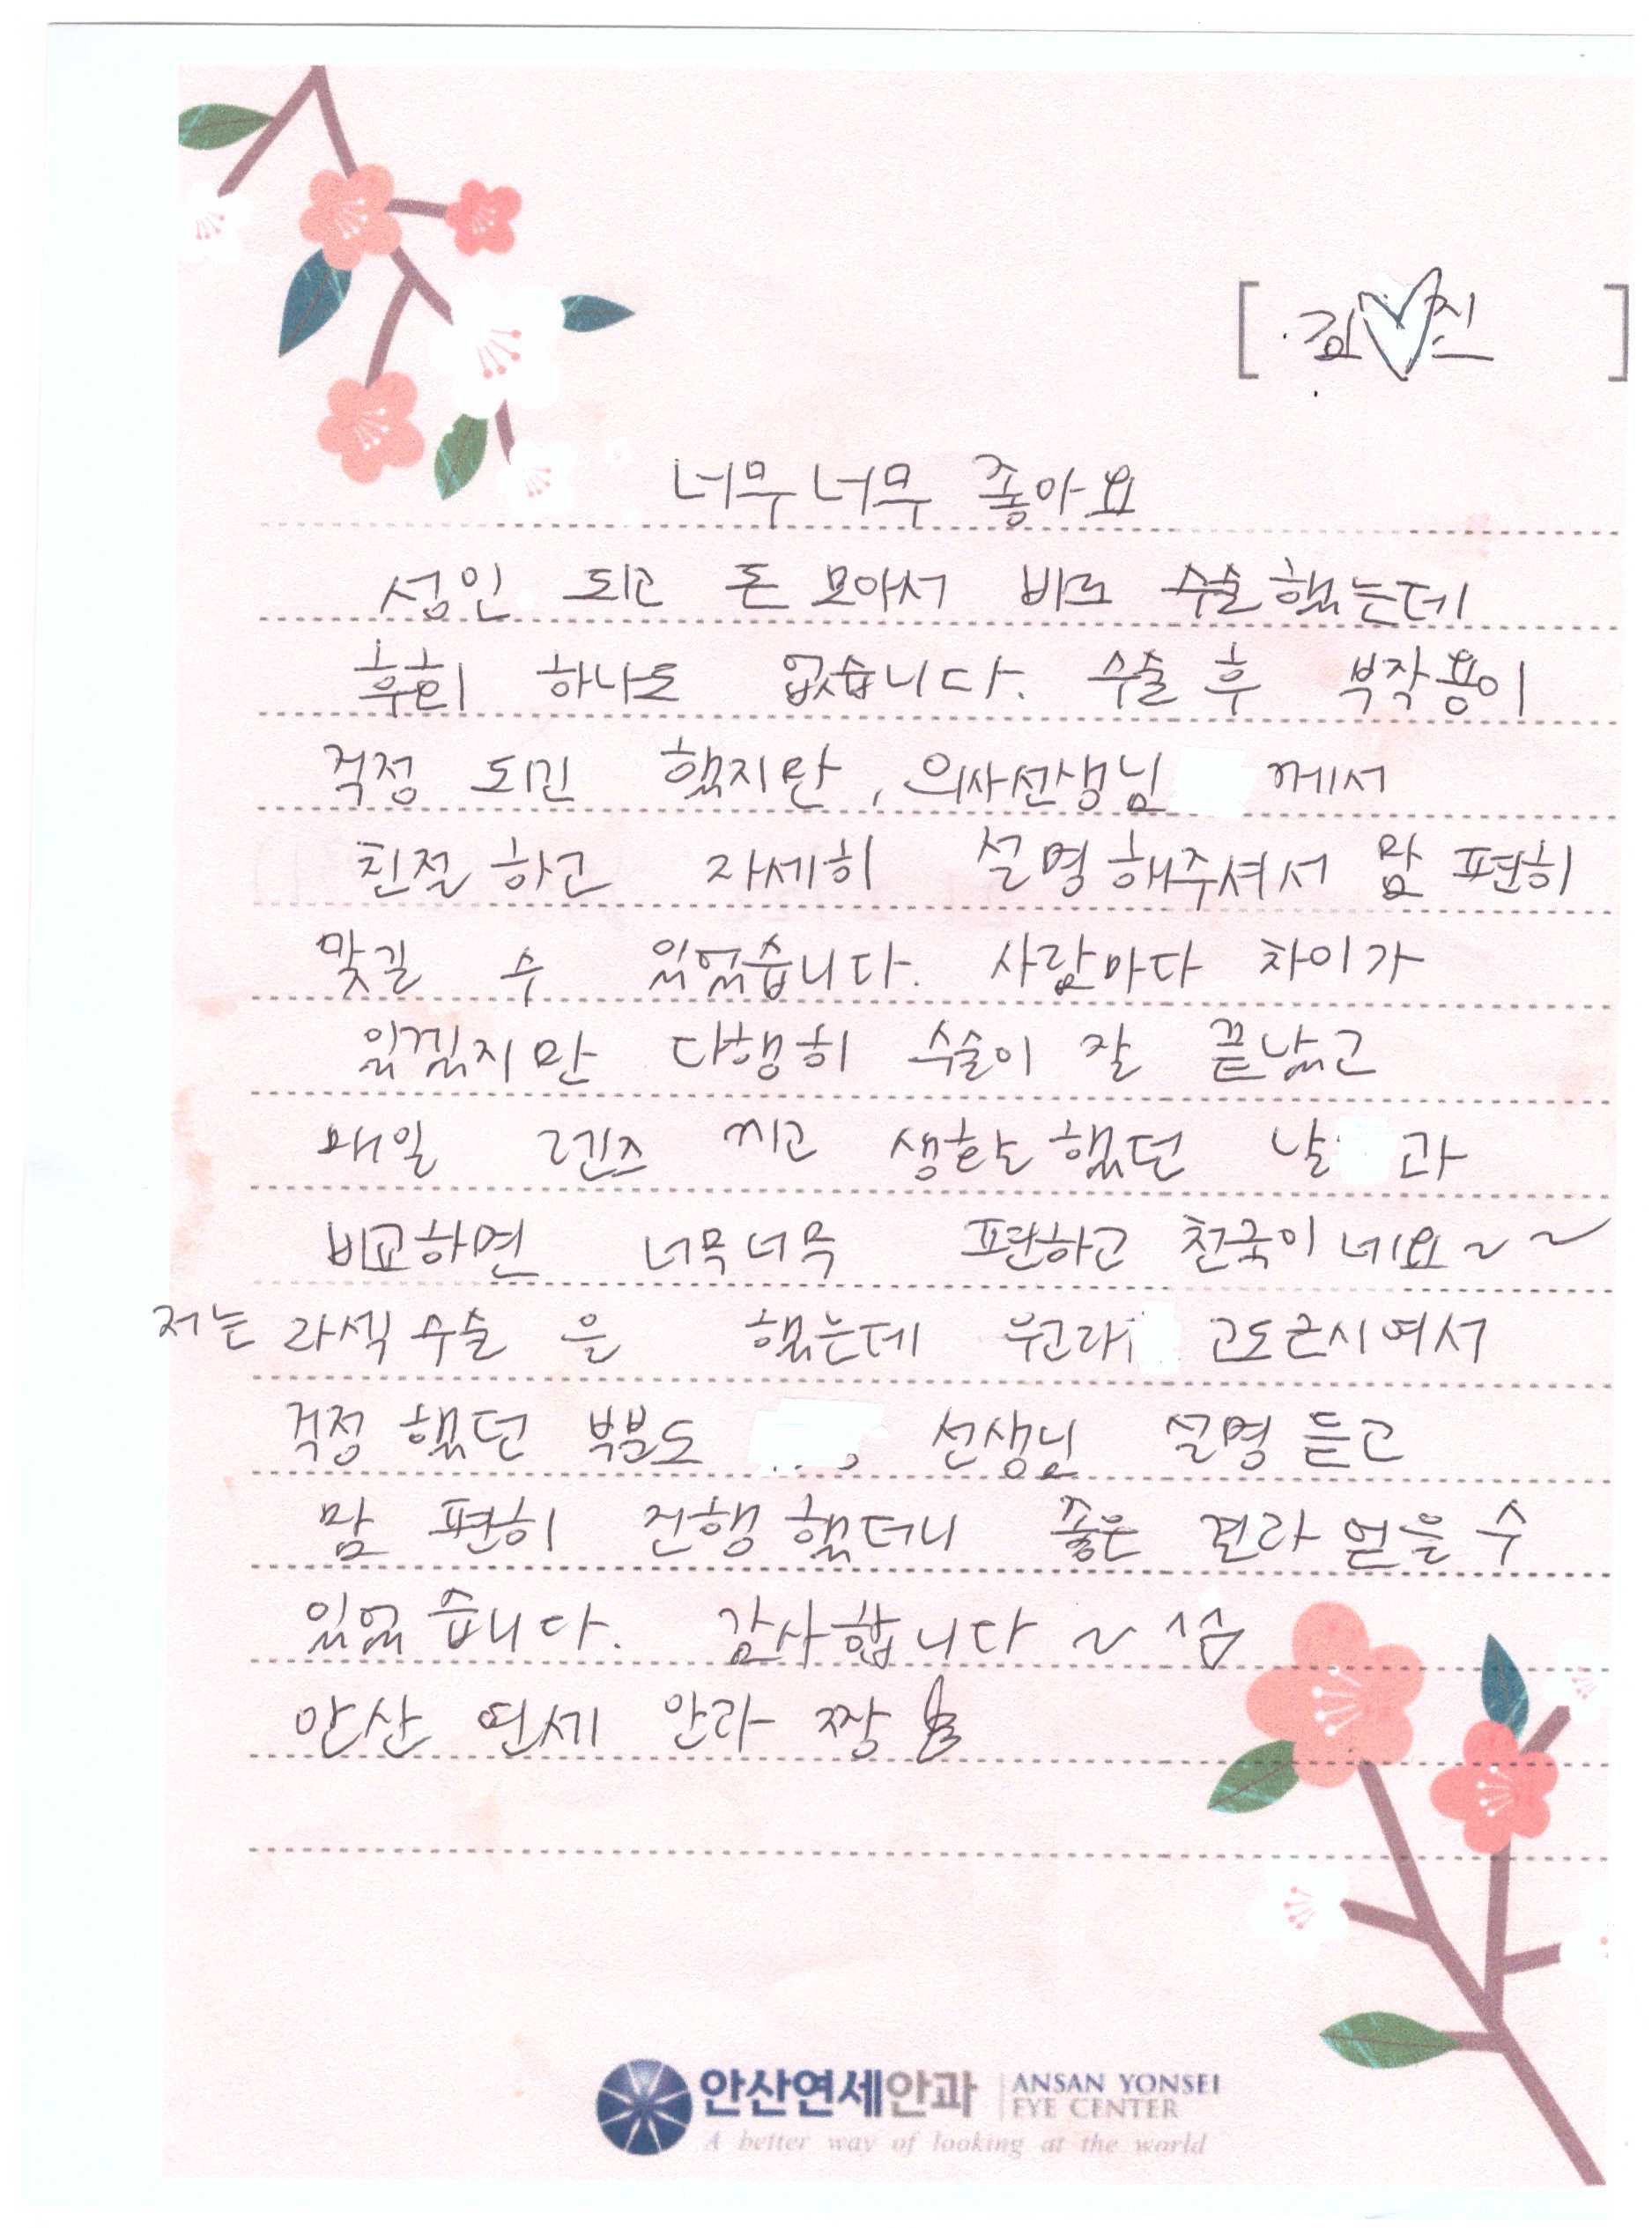 [ 김♡진 ]
너무너무 좋아요
성인 되고 돈 모아서 바로 수술했는데
후회 하나도 없습니다. 수술 후 부작용이
걱정 되긴 했지만, 의사선생님 께서
친절하고 자세히 설명해주셔서 맘 편히
맞길 수 있었습니다. 사람마다 차이가
있겠지만 다행히 수술이 잘 끝났고
매일 렌즈 끼고 생활했던 날 과
비교하면 너무너무 편하고 천국이네요~~
저는 라섹수술을 했는데 워낙 고도근시여서
걱정했던 부분도 선생님 설명 듣고
맘 편히 진행했더니 좋은 결과 얻을 수
있었습니다. 감사합니다~^^
안산 연세 안과 짱
안산연세안과 ANSAN YONSEI
EYE CENTER
A better way of looking at the world